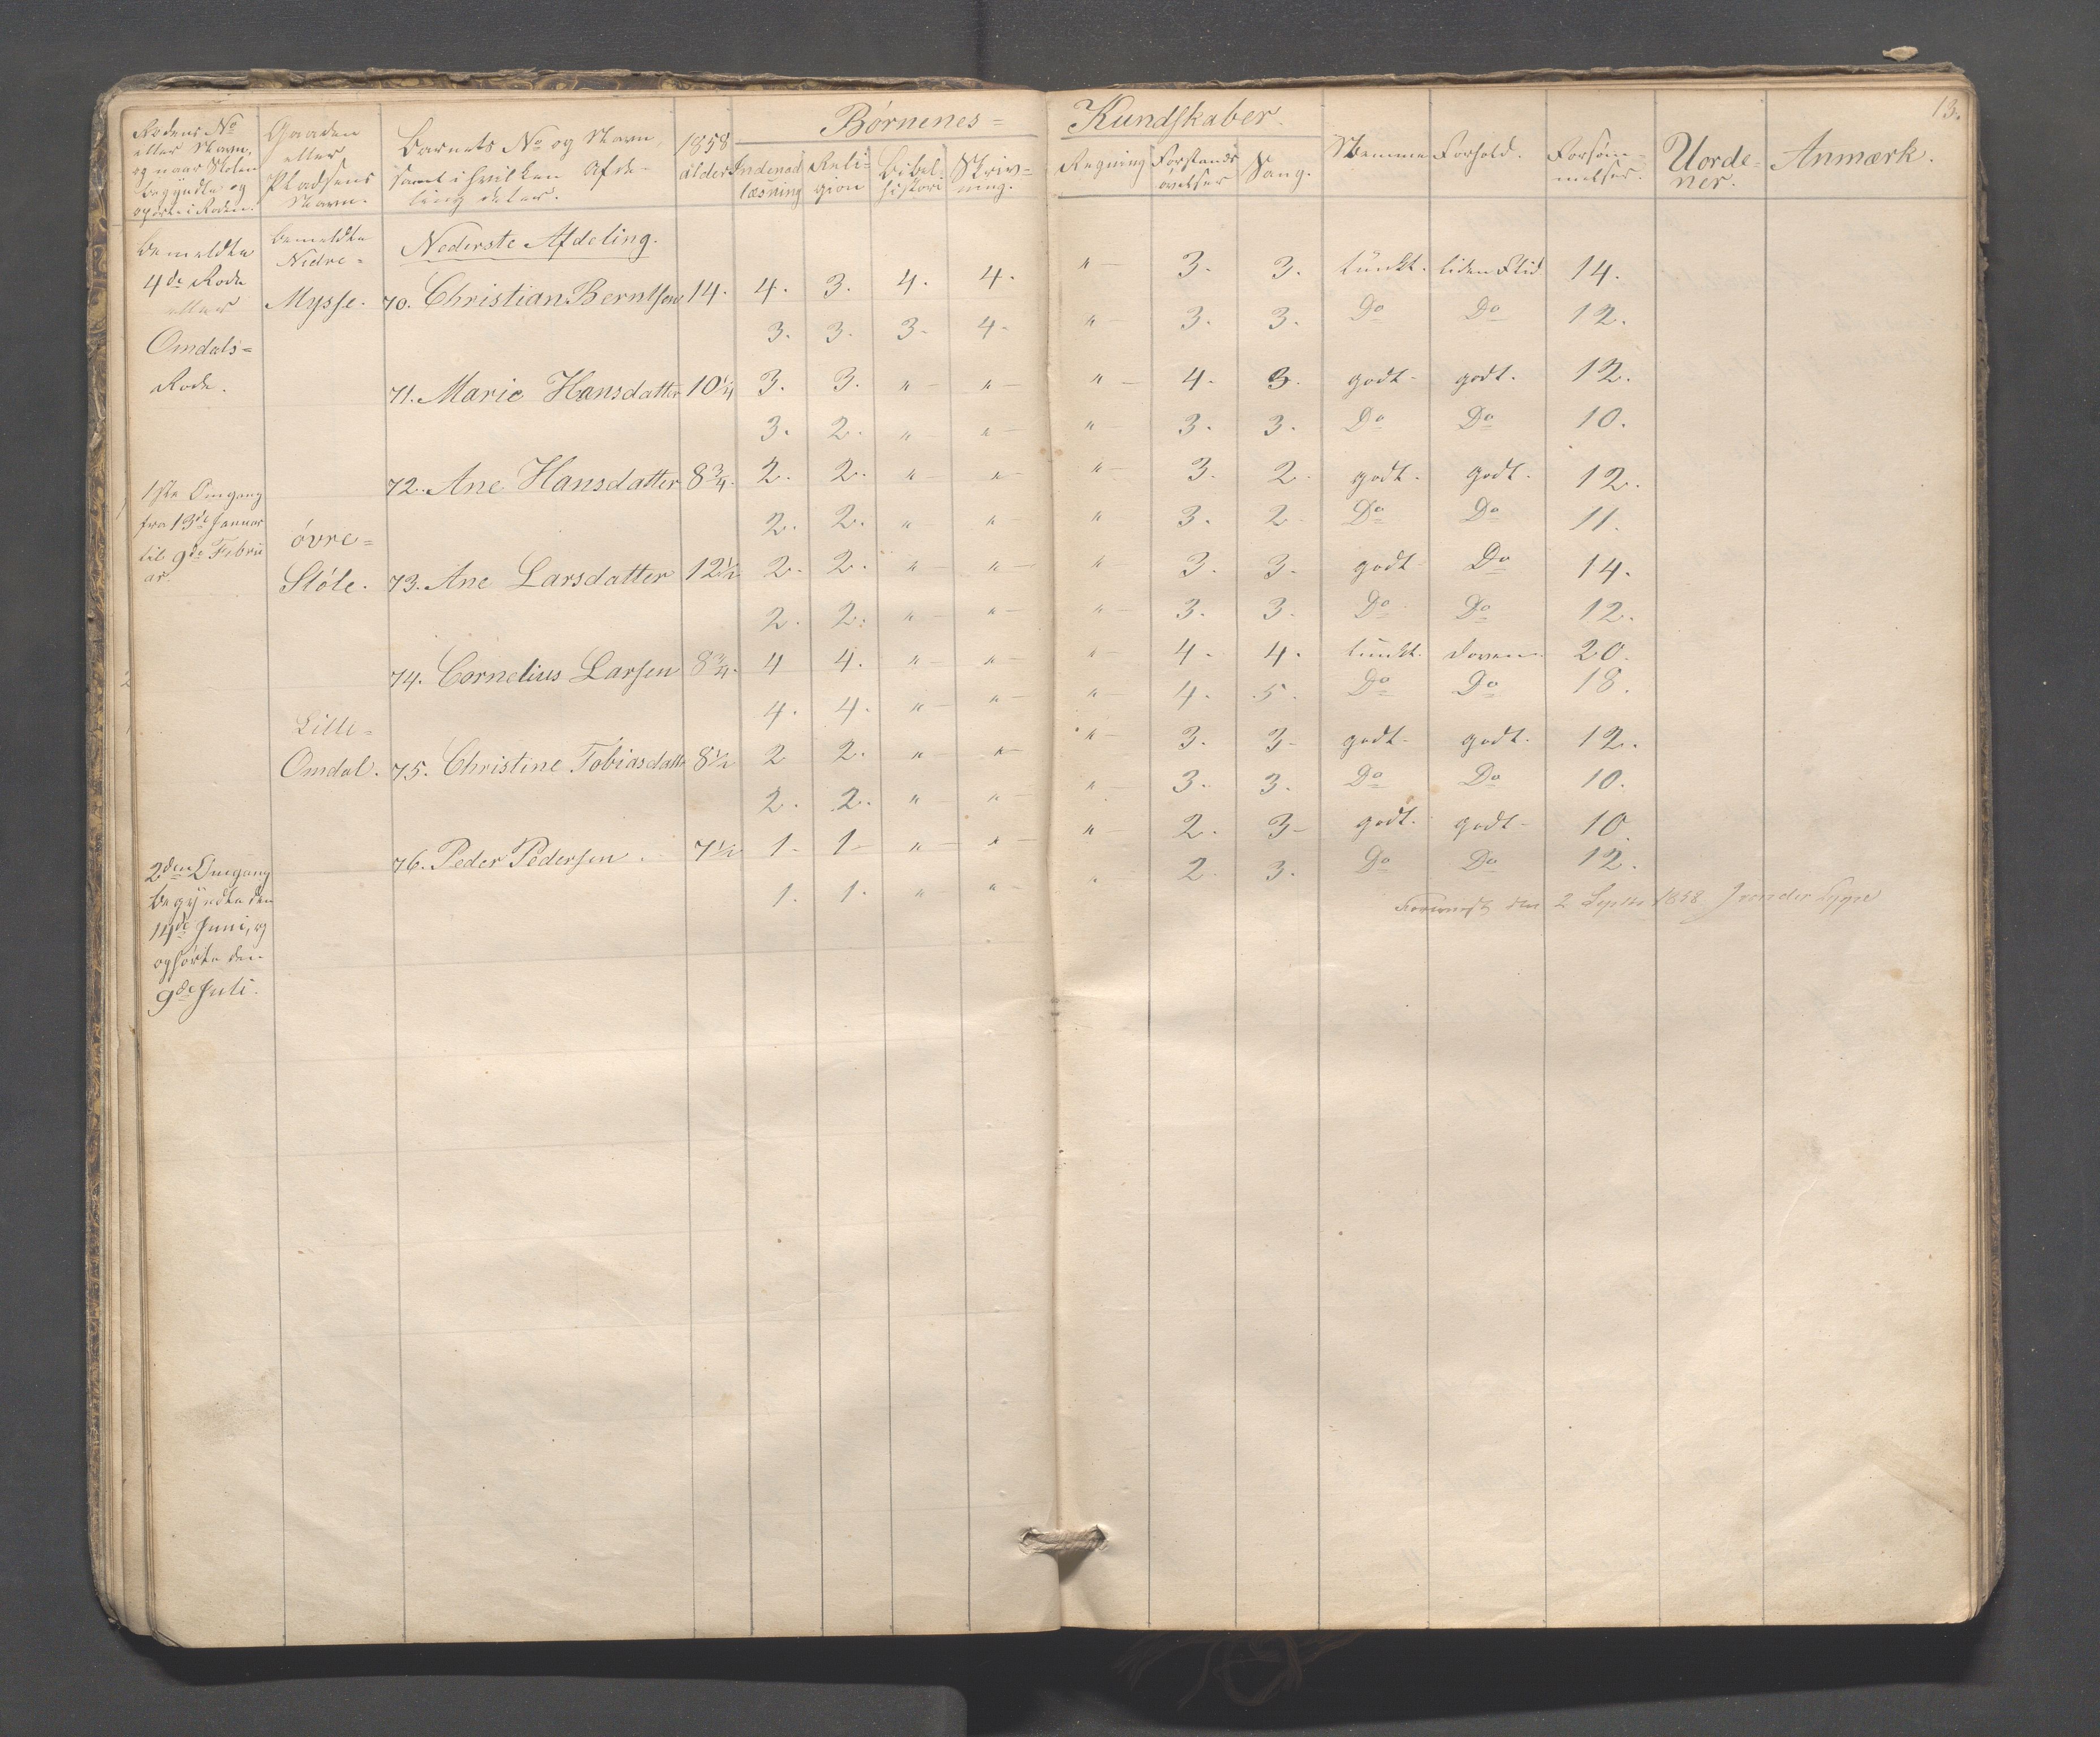 13.
Børnenes= Kundskaber.
Rodens No eller Navn, og naar Skolen begyndte og ophørte i Roden.
Gaardens eller Pladsens Navn.
Barnets No og Navn, samt i hvilken Afdeling det er.
1858 alder
Indenadlæsning
Religion
Bibelhistori
Skrivning.
Regning
Forstandsøvelser
Sang.
Nemme
Forhold.
Forsømmelser.
Uordener.
Anmærk.
Bemeldte
4de Rode
eller
Omdals=
Rode.
1ste Omgang
fra 13de Januar
til 9de Febru
ar.
2den Omgang
begyndte den
14de Juni, og
ophørte den
9de Juli.
Nederste Afdeling.
Bemeldte
Nedre=
Mysse. 70. Christian Berntsen 14. 4. 3. 4. 4. " 3. 3. tungt. liden Flid 14.
3. 3. 3. 4. " 3. 3. Do Do 12.
71. Marie Hansdatter 10 1/4 3. 3. " " " 4. 3. godt. godt. 12.
3. 2. " " " 3. 3. Do Do 10.
72. Ane Hansdatter 8 3/4. 2. 2. " " " 3. 2. godt. godt. 12.
2. 2. " " " 3. 2 Do Do 11.
øvre=
Støle. 73. Ane Larsdatter 12 1/2 2. 2. " " " 3. 3. godt Do 14.
2. 2. " " " 3. 3. Do Do 12.
74. Cornelius Larsen 8 3/4. 4 4. " " " 4. 4. tungt. doven 20.
4. 4. " " " 4. 5. Do Do 18.
Lille=
Omdal. 75. Christine Tobiasdatt 8 1/2 2 2. " " " 3. 3 godt. godt. 12.
2. 2. " " " 3. 3. Do Do 10.
76. Peder Pedersen. 7 1/2 1 1 " " " 2. 3 godt. godt 10.
1. 1. " " " 2. 3. Do Do 12.
den 2 Septbr 1858